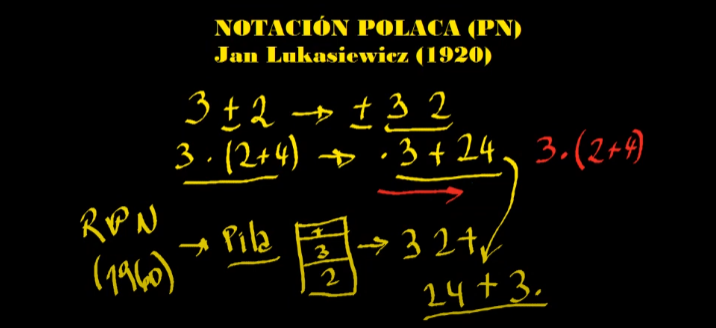 NOTACIÓN POLACA (PN)
Jan Lukasiewicz (1920)
3 + 2 → + 3 2
3 · (2+4) → · 3 + 24 3·(2+4)
RPN
(1960) → Pila + 3 2 → 3 2 +
24 + 3 ·